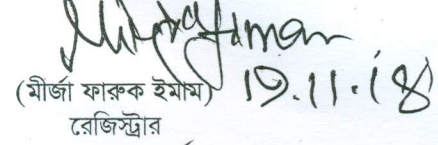 19.11.18
(মীর্জা ফারুক ইমাম)
রেজিস্ট্রার